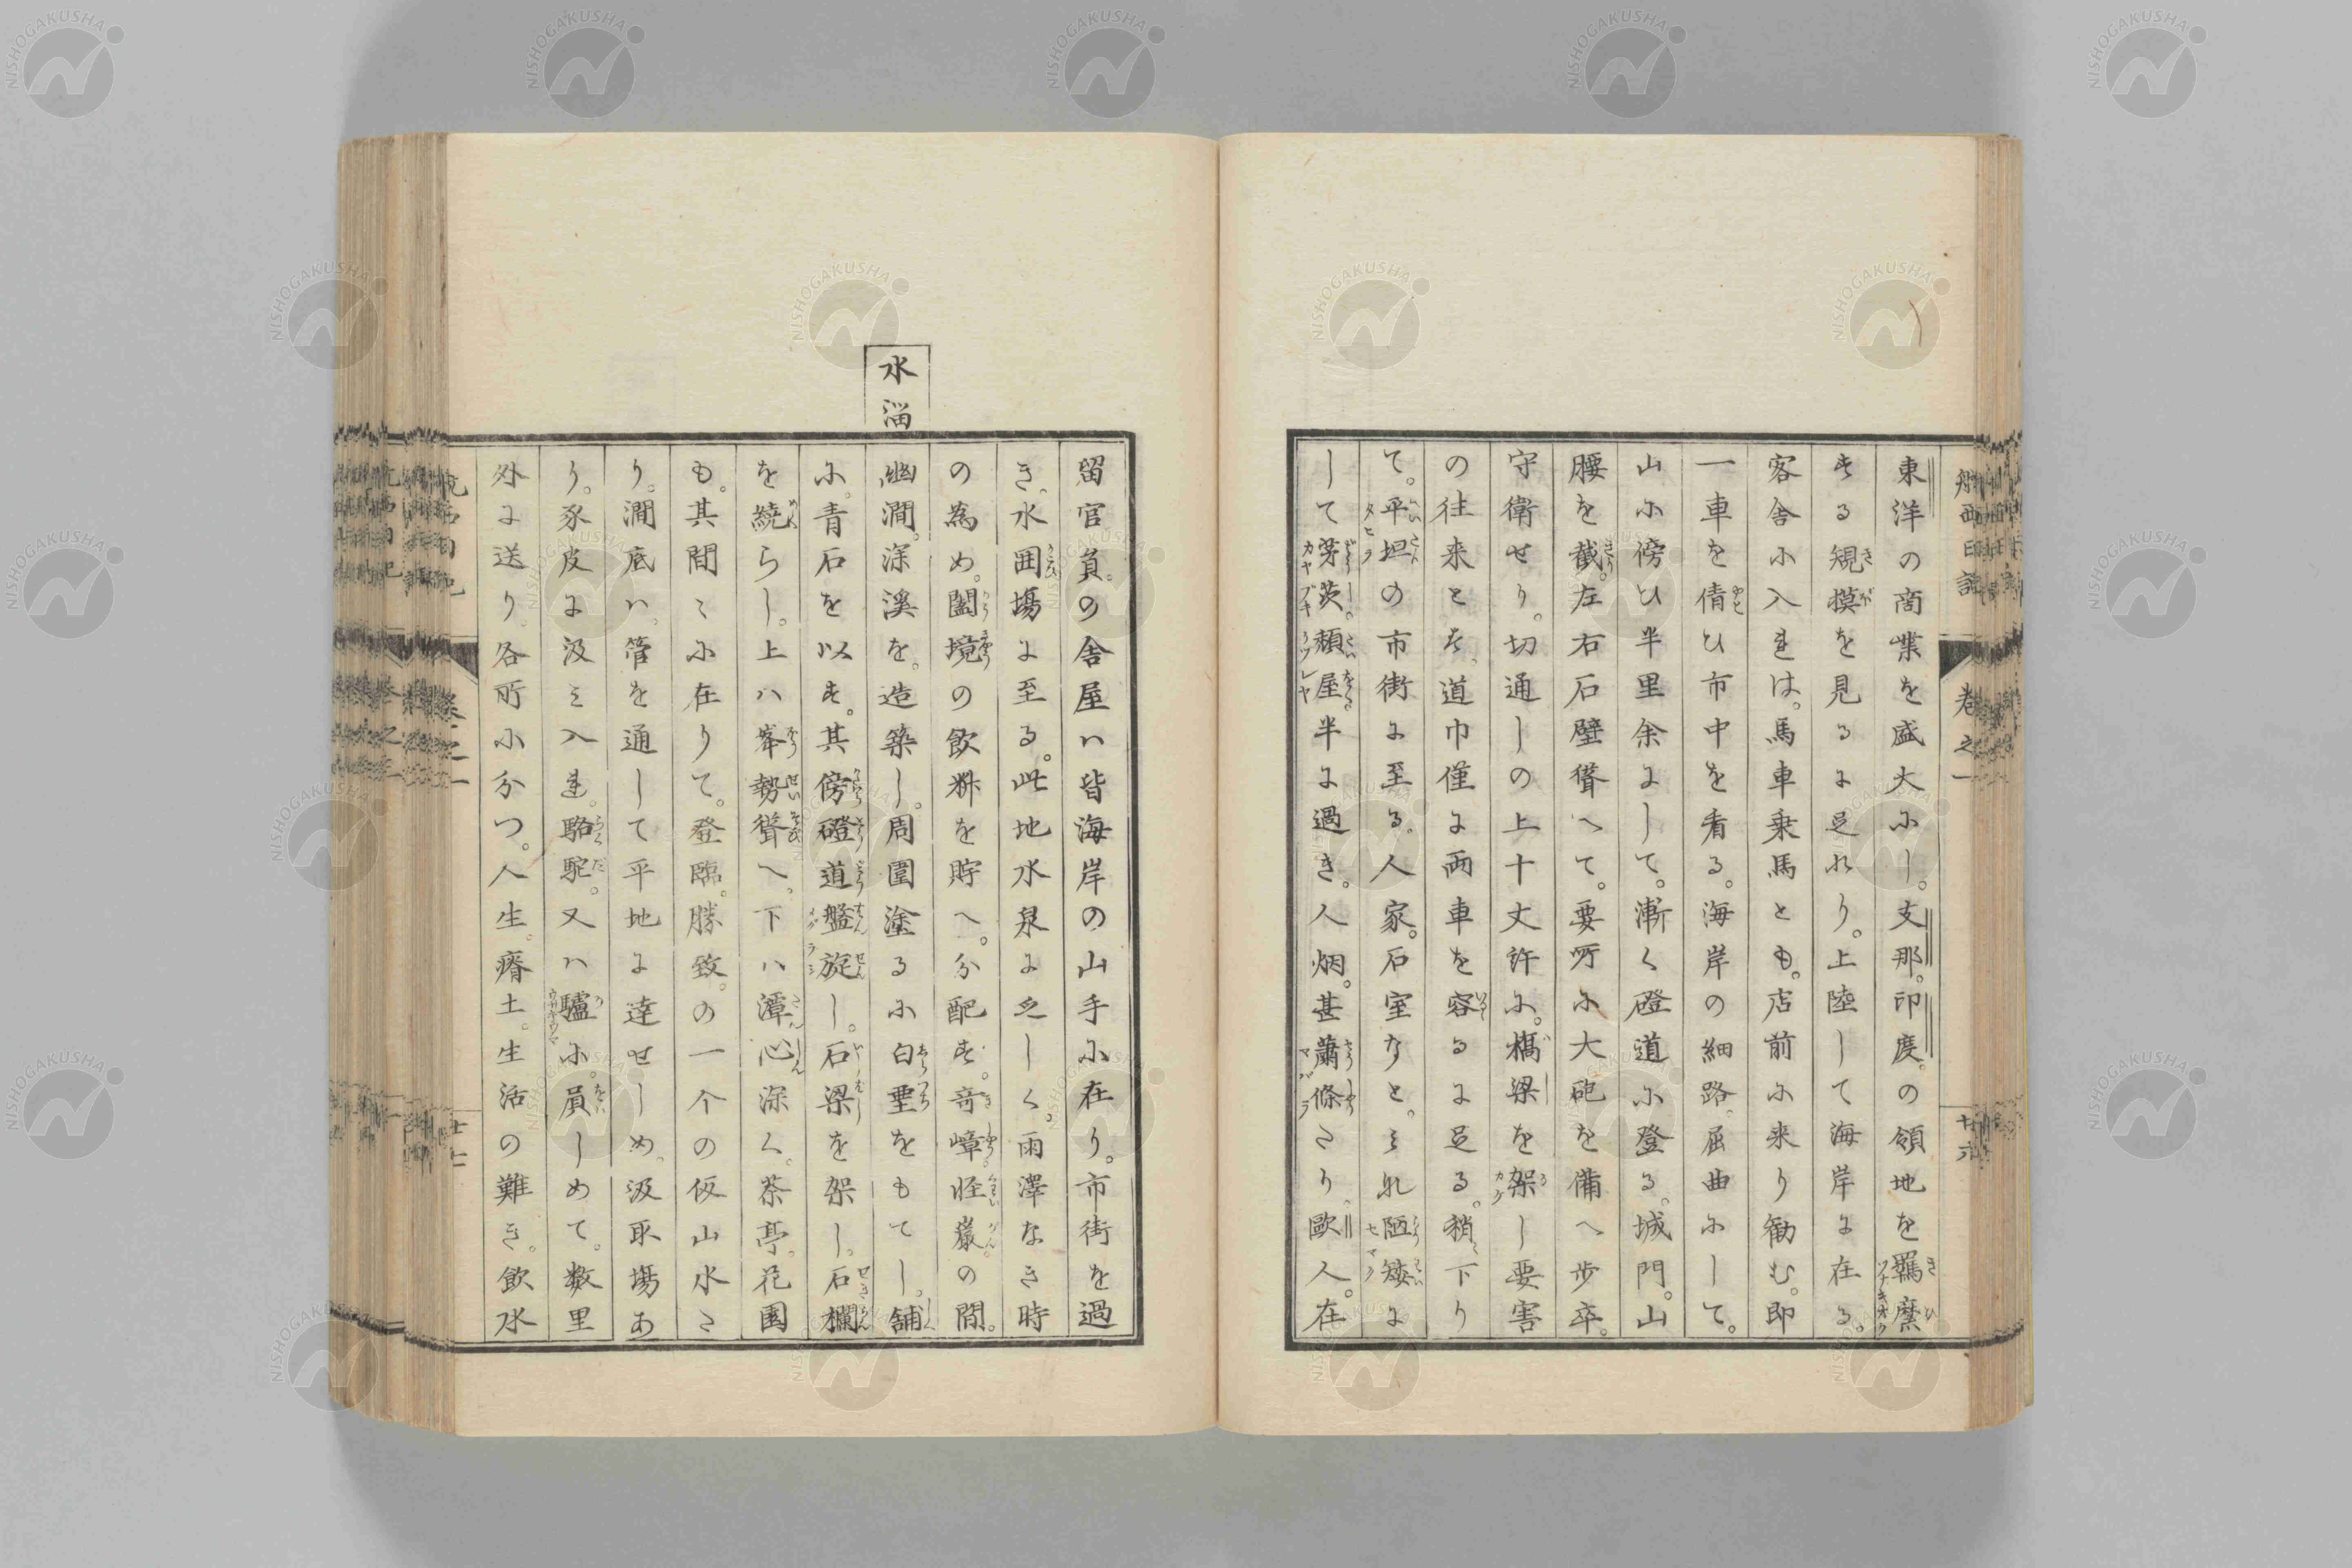 航西日記
巻之一
廿六
東洋の商業を盛大にし。支那。印度。の領地を羈縻
する規摸を見るに足れり。上陸して海岸に在る。
客舎に入れは。馬車乗馬とも。店前に来り勧む。即
一車を倩ひ市中を看る。海岸の細路。屈曲にして。
山に傍ひ半里余にして。漸く磴道に登る。城門。山
腰を截。左右石壁聳へて。要所に大砲を備へ歩卒。
守衛せり。切通しの上十丈許に。橋梁を架し要害
の往来とす。道巾僅に両車を容るに足る。稍〻下り
て。平坦の市街に至る。人家。石室なと。みれ陋矮に
して茅茨。頽屋。半に過き。人烟。甚蕭條たり。歐人。在
留官員。の舎屋ハ皆海岸の山手に在り。市街を過
き。水囲塲に至る。此地水泉に乏しく。雨澤なき時
の為め。闔境の飲料を貯へ。分配す。奇嶂。怪巌。の間。
水溜
幽澗。深溪を。造築し。周圍塗るに白堊をもてし。舗
に。青石を以す。其傍磴道盤旋し。石梁を架し。石欄
を繞らし。上ハ峯勢聳へ。下ハ潭心深く。茶亭。花園
も。其間〻に在りて。登臨。勝致。の一个の仮山水た
り。澗底ハ。管を通して平地に達せしめ。汲取塲あ
り。豕皮に汲み入れ。駱駝。又ハ驢に。員しめて。数里
外に送り。各所に分つ。人生。瘠土。生活の難き。飲水